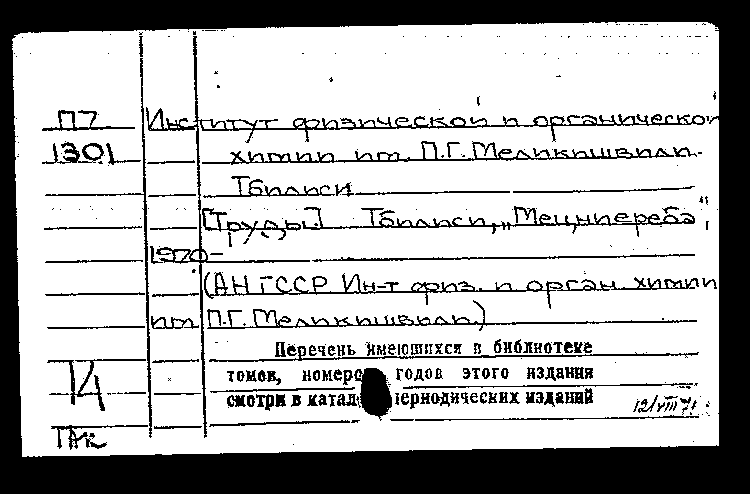 П7 Институт физической и органической
1301 химии им. П.Г. Меликишвили.
Тбилиси
[Труды.] Тбилиси, „Мецниереба",
1970-
(АН ГССР Ин-т физ. и орган. химии
им. П.Г. Меликишвили.)
Перечень имеющихся в библиотеке
14 томов, номеров годов этого издания
смотри в катал периодических изданий
12/VIII 71.